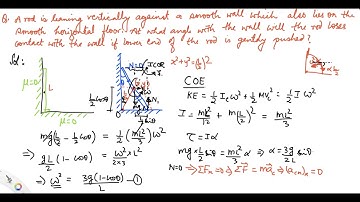 Q. A rod is leaning vertically against a smooth wall which also lies on the
smooth horizontal floor. At what angle with the wall will the rod loses
contact with the wall if lower end of the rod is gently pushed?
Sol:
μ=0
L
μ=0
N=0
ICOR
x²+y²=(L/2)²
COE
KE = ½ I₀ω² + ½ MV₀² = ½ I ω²
I = mL²/12 + m(L/2)² = mL²/3
τ = Iα
mg L/2 (1-cosθ) = ½ (mL²/3) ω²
mg×L/2 sinθ = mL²/3 α ⇒ α = 3g/2L sinθ
⇒ gL/2 (1-cosθ) = ω²×L²/2×3
N=0 ⇒ ΣFₓ = 0 ⇒
⇒ ω² = 3g(1-cosθ)/L —①